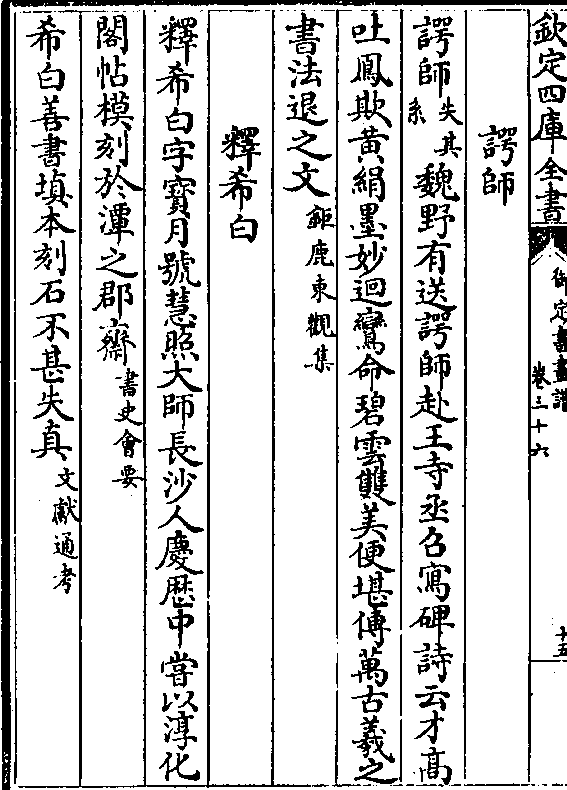 欽定四庫全書
御定書畫譜
卷三十六
十五
諤師
諤師失其系魏野有送諤師赴王寺丞召寫碑詩云才高
吐鳳欺黃絹墨妙迴鸞命碧雲雙美便堪傳萬古羲之
書法退之文鉅鹿東觀集
釋希白
釋希白字寶月號慧照大師長沙人慶歷中嘗以淳化
閣帖模刻於潭之郡齋書史會要
希白善書填本刻石不甚失真文獻通考